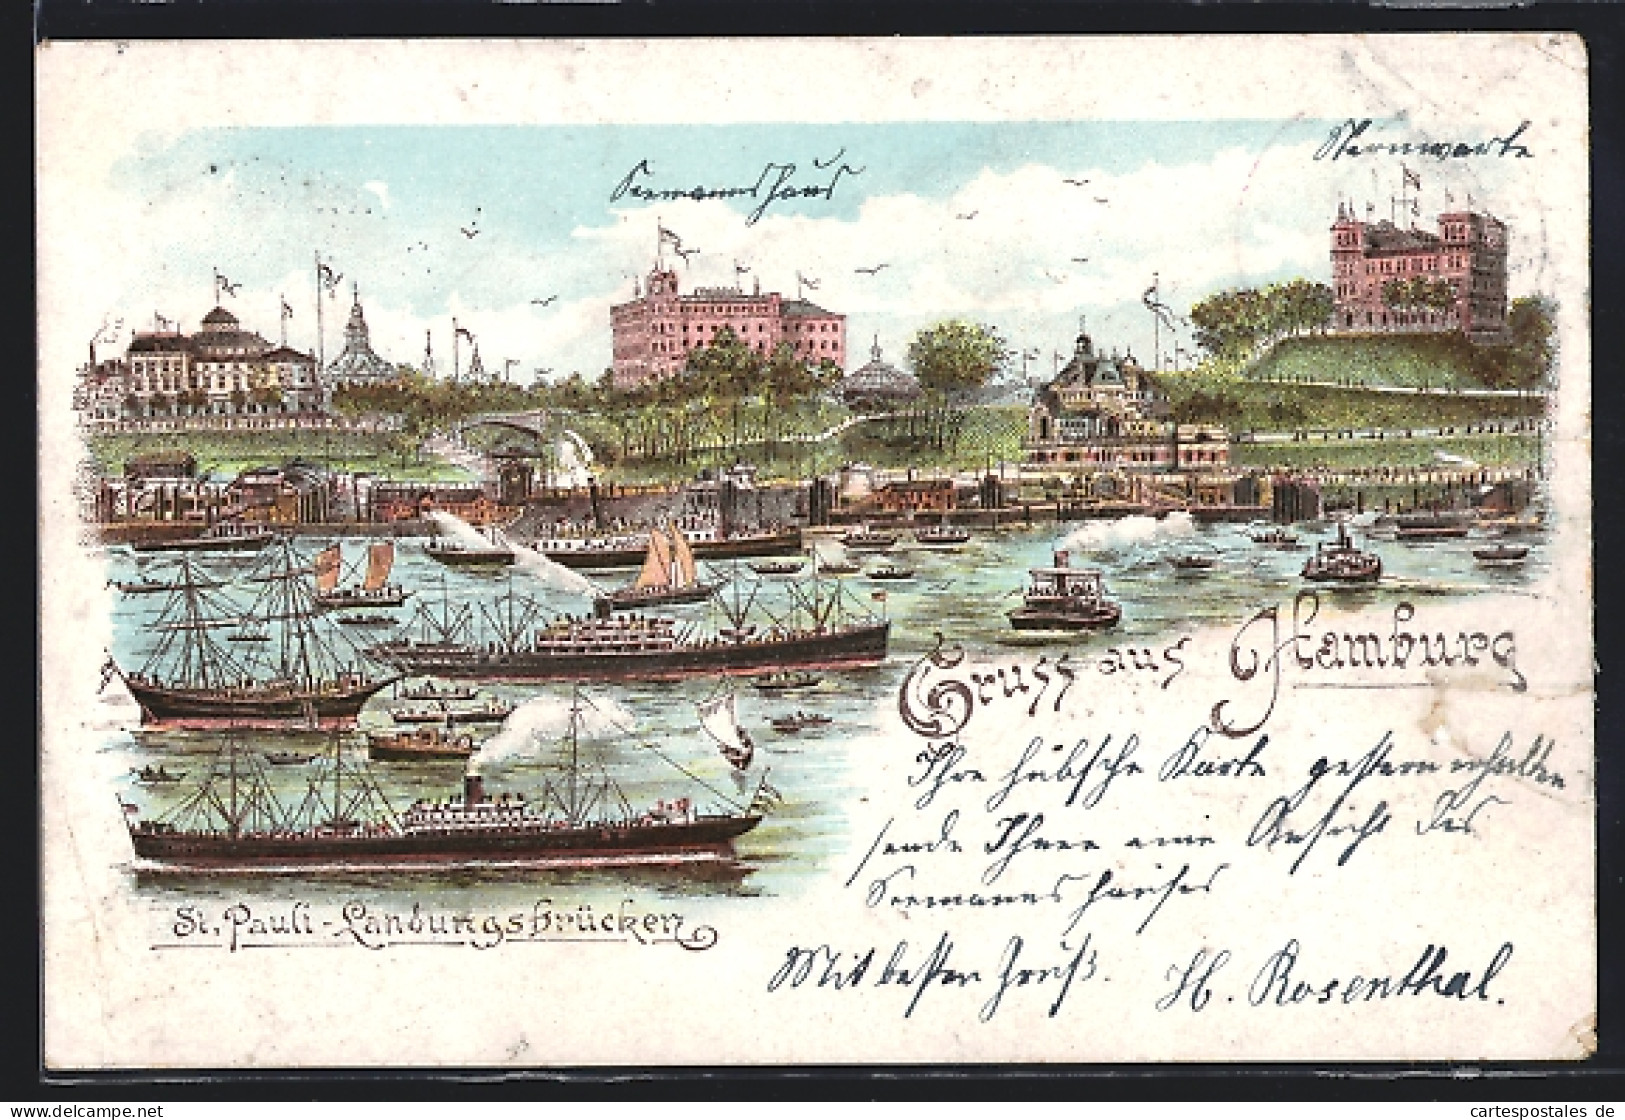 Sternwarte
Seemannshaus
Gruss aus Hamburg
Ihre hübsche Karte gestern erhalten
sende Ihnen eine Ansicht des
Seemannshauses
St. Pauli-Landungsbrücken
Mit besten Gruß. H. Rosenthal.
delcampe.net
cartespostales de